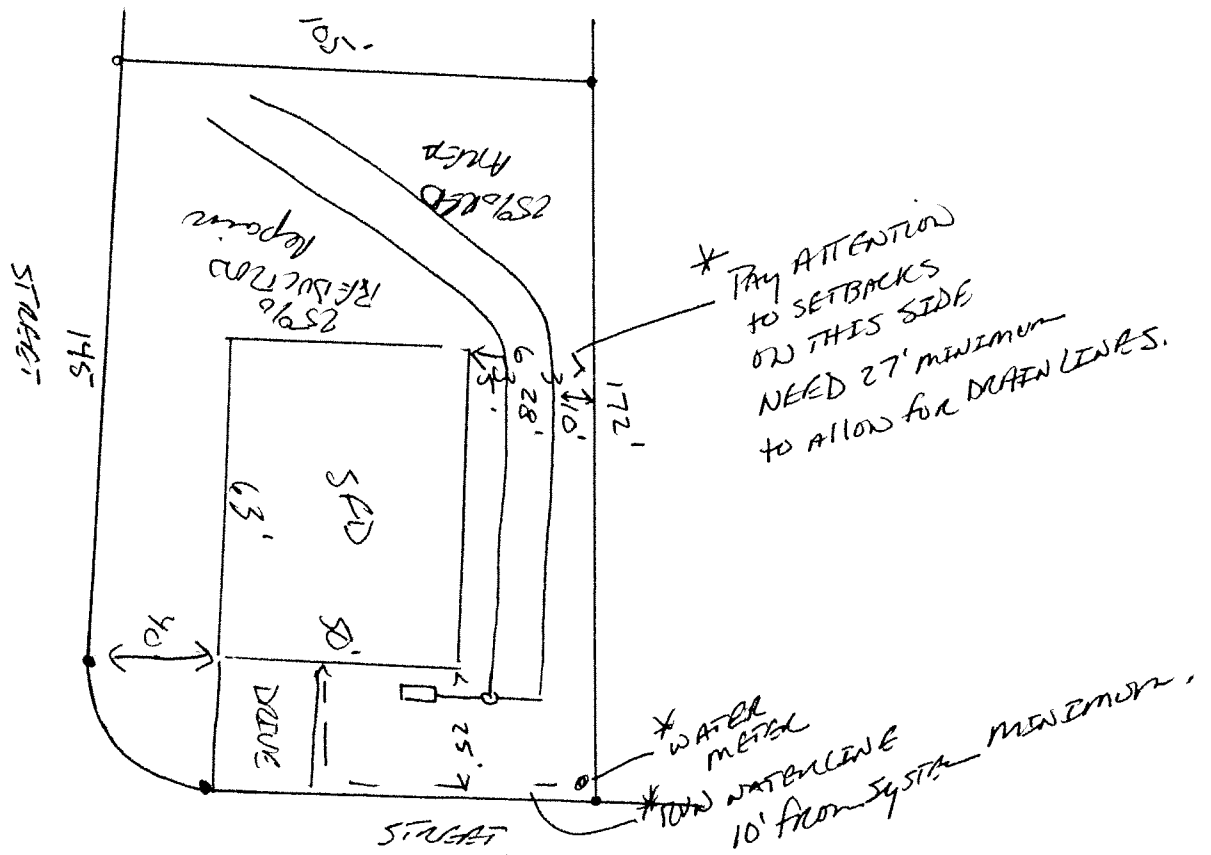 105'
25% RED
AREA
25%
REDUCTION
Repair
STREET
145
172'
* PAY ATTENTION
to SETBACKS
ON THIS SIDE
NEED 27' MINIMUM
to Allow for DRAIN LINES.
5'
28'
10'
SFD
63'
50'
40
DRIVE
25'
* WATER
METER
* RUN WATERLINE
10' from System MINIMUM.
STREET